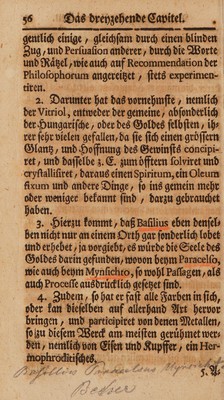 56 Das dreyzehende Capitel.
gentlich einige, gleichsam durch einen blinden
Zug, und Persuasion anderer, durch die Worte
und Rätzel, wie auch auf Recommendation der
Philosophorum angereitzet, stets experimen-
tiren.
2. Darunter hat das vornehmste, nemlich
der Vitriol, entweder der gemeine, absonderlich
der Hungarische, oder des Goldes selbsten, ih-
rer sehr vielen gefallen, da sie sich einen grössern
Glantz, und Hoffnung des Gewinsts concipi-
ret, und dasselbe z. E. zum öfftern solviret und
crystallisiret, daraus einen Spiritum, ein Oleum
fixum und andere Dinge, so ins gemein mehr
oder weniger bekannt sind, darzu gebrauchet
haben.
3. Hierzu kommt, daß Basilius eben densel-
ben nicht nur an einem Orth gar sonderlich lobet
und erhebet, ja vorgiebt, es würde die Seele des
Goldes darin gefunden, wovon beym Paracelso,
wie auch beym Mynsichto, so wohl Passagen, als
auch Processe ausdrücklich gesetzt sind.
4. Zudem, so hat er fast alle Farben in sich,
oder kan dieselben auf allerhand Art hervor
bringen, und participiret von denen Metallen,
so zu diesem Werck am meisten gerühmet wer-
den, nemlich von Eisen und Kupffer, ein Her-
mophroditisches.
5. A
Basillius Paracelsus Mynsicht